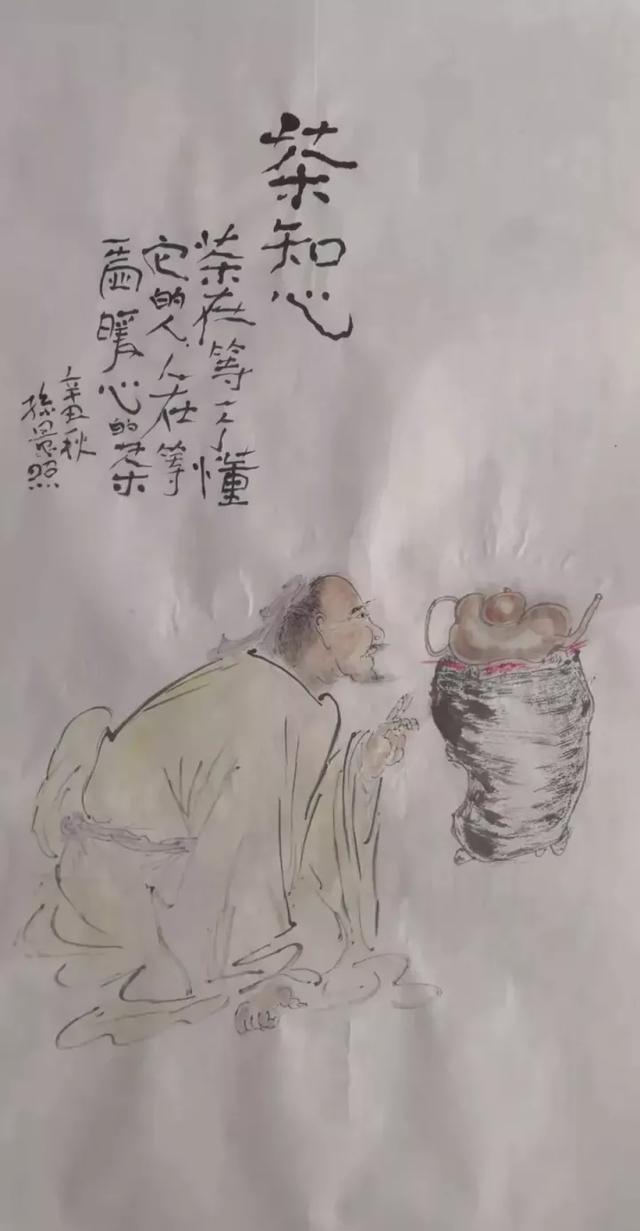 茶知心
茶在等一个懂
它的人人在等
一壺暖心的茶
辛丑秋
孫景照